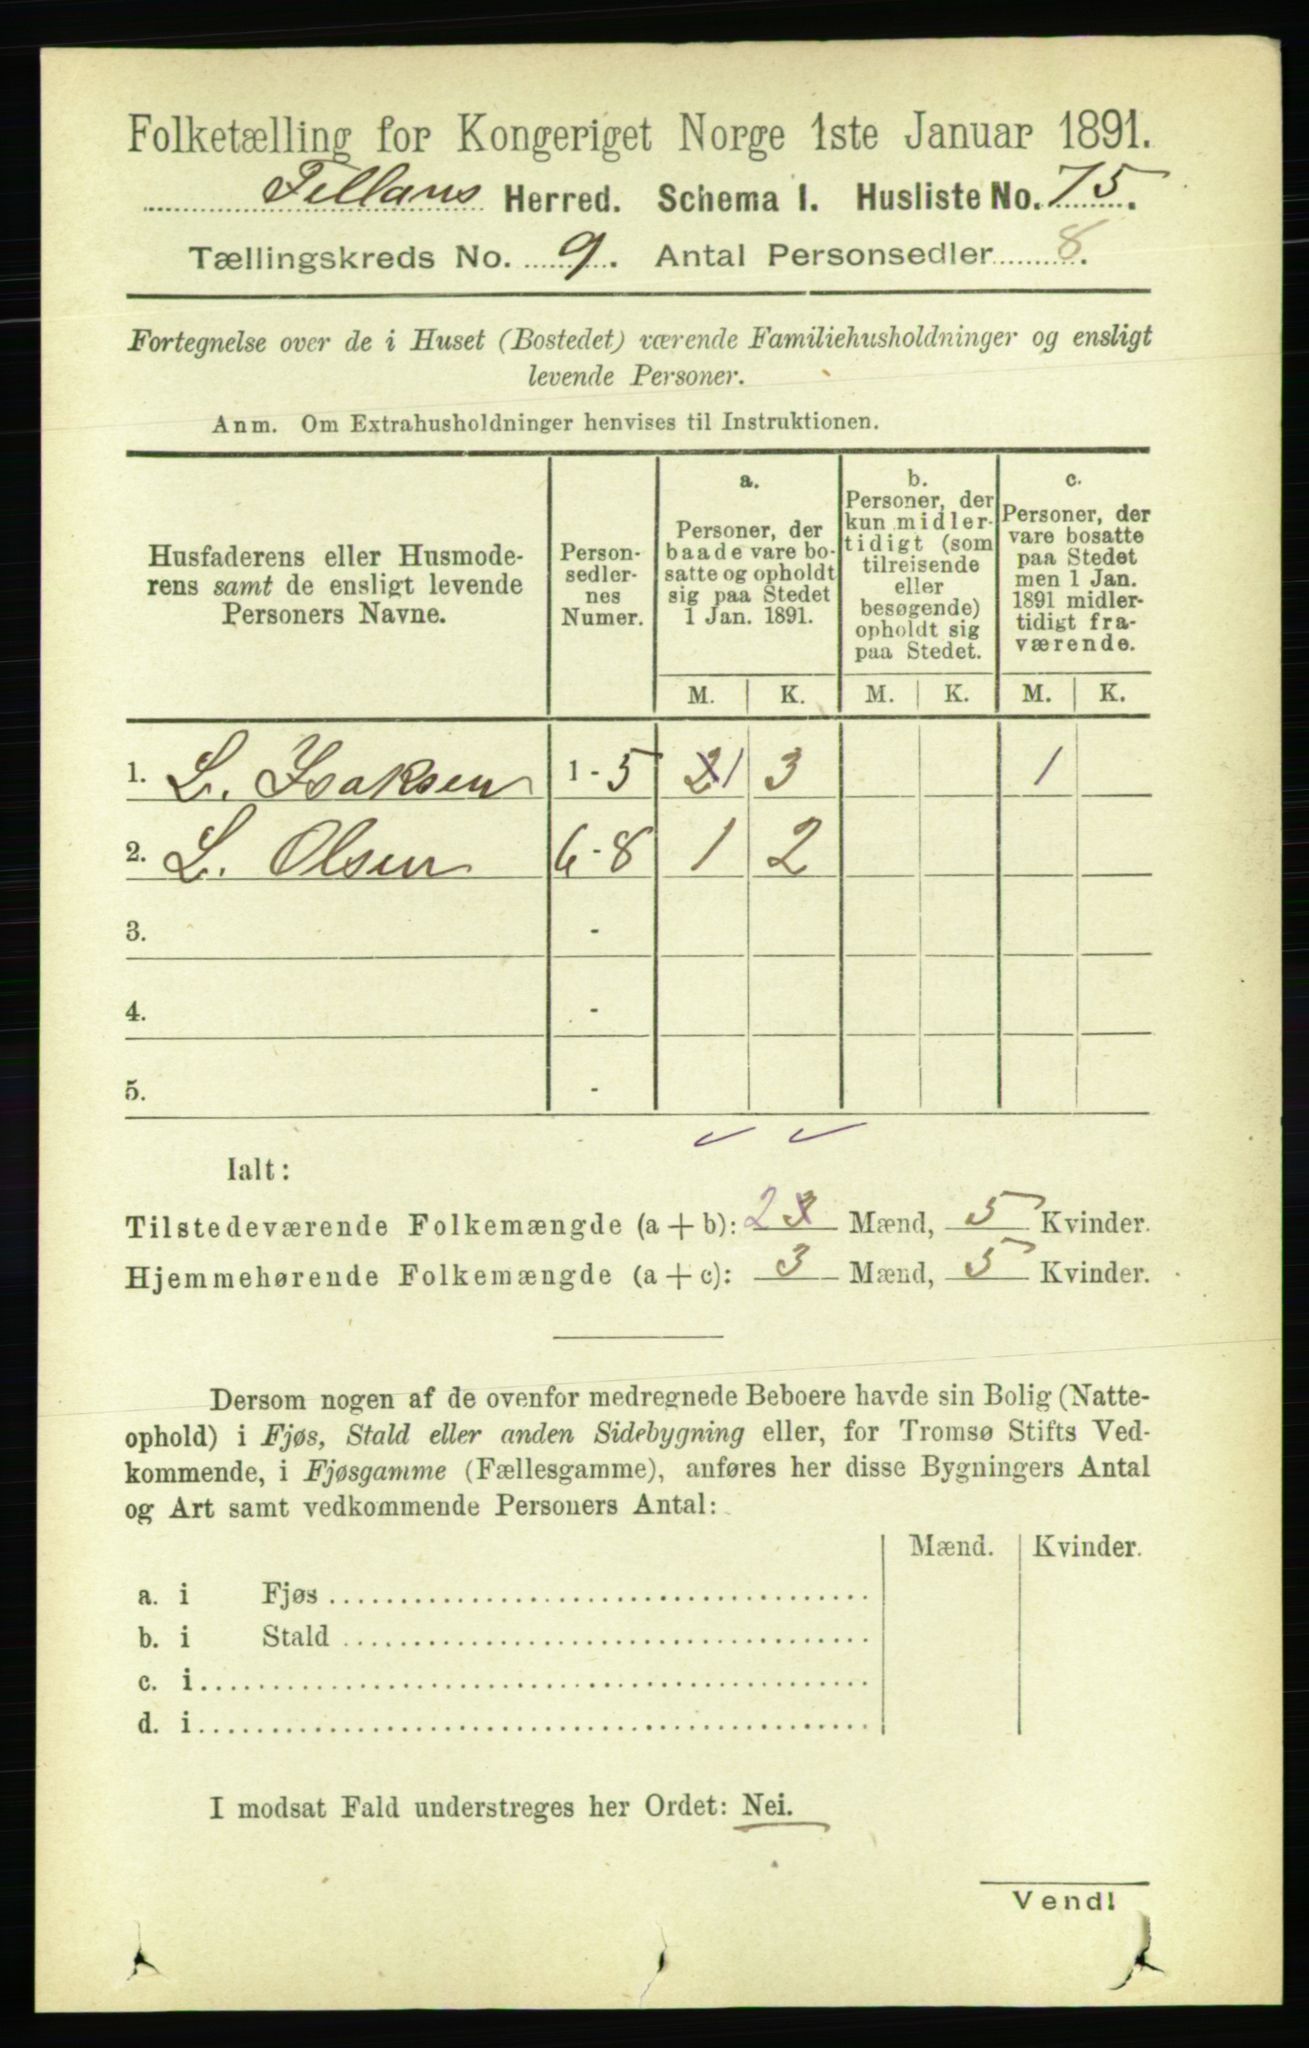 Folketælling for Kongeriget Norge 1ste Januar 1891.
Fillans Herred. Schema I. Husliste No. 75.
Tællingskreds No. 9. Antal Personsedler 8.
Fortegnelse over de i Huset (Bostedet) værende Familiehusholdninger og ensligt
levende Personer.
Anm. Om Extrahusholdninger henvises til Instruktionen.
Husfaderens eller Husmode-
rens samt de ensligt levende
Personers Navne.
Person-
sedler-
nes
Numer.
a.
Personer, der
baade vare bo-
satte og opholdt
sig paa Stedet
1 Jan. 1891.
b.
Personer, der
kun midler-
tidigt (som
tilreisende
eller
besøgende)
opholdt sig
paa Stedet.
c.
Personer, der
vare bosatte
paa Stedet
men 1 Jan.
1891 midler-
tidigt fra-
værende.
M. K. M. K. M. K.
1. L. Isaksen 1 - 5 2 1 3 1
2. L. Olsen 6 - 8 1 2
3. -
4. -
5. -
Ialt:
Tilstedeværende Folkemængde (a + b): 2 3 Mænd, 5 Kvinder.
Hjemmehørende Folkemængde (a + c): 3 Mænd, 5 Kvinder.
Dersom nogen af de ovenfor medregnede Beboere havde sin Bolig (Natte-
ophold) i Fjøs, Stald eller anden Sidebygning eller, for Tromsø Stifts Ved-
kommende, i Fjøsgamme (Fællesgamme), anføres her disse Bygningers Antal
og Art samt vedkommende Personers Antal:
Mænd. Kvinder.
a. i Fjøs
b. i Stald
c. i
d. i
I modsat Fald understreges her Ordet: Nei.
Vend!